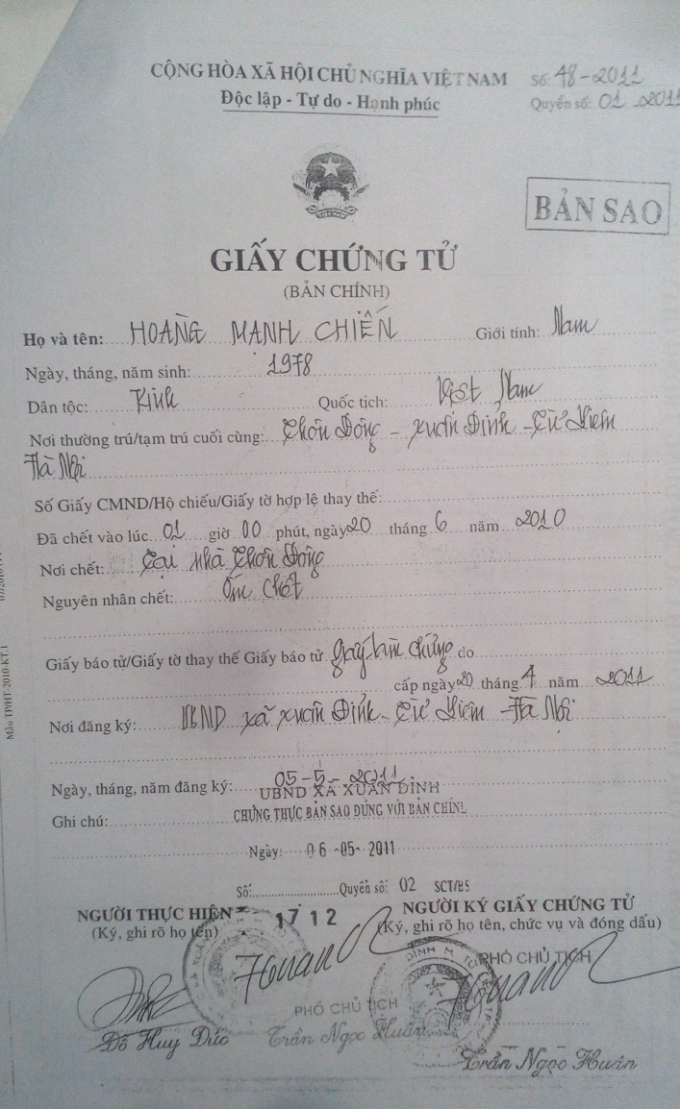 CỘNG HÒA XÃ HỘI CHỦ NGHĨA VIỆT NAM
Số: 48-2011
Độc lập - Tự do - Hạnh phúc
Quyển số: 01 2011
BẢN SAO
GIẤY CHỨNG TỬ
(BẢN CHÍNH)
Họ và tên: HOÀNG MẠNH CHIẾN Giới tính: Nam
Ngày, tháng, năm sinh: 1978
Dân tộc: Kinh Quốc tịch: Việt Nam
Nơi thường trú/tạm trú cuối cùng: Thôn Đông - Xuân Đỉnh - Từ Liêm
Hà Nội
Số Giấy CMND/Hộ chiếu/Giấy tờ hợp lệ thay thế:
Đã chết vào lúc 01 giờ 00 phút, ngày 20 tháng 6 năm 2010
Nơi chết: Tại nhà Thôn Đông
Nguyên nhân chết: Ốm chết
Giấy báo tử/Giấy tờ thay thế Giấy báo tử giấy làm chứng do
cấp ngày 20 tháng 4 năm 2011
Nơi đăng ký: UBND xã Xuân Đỉnh - Từ Liêm - Hà Nội
Ngày, tháng, năm đăng ký: 05-5-2011
UBND XÃ XUÂN ĐỈNH
Ghi chú: CHỨNG THỰC BẢN SAO ĐÚNG VỚI BẢN CHÍNH
Ngày: 06-05-2011
Số: Quyển số: 02 SCT/BS
1712
NGƯỜI THỰC HIỆN
(Ký, ghi rõ họ tên)
NGƯỜI KÝ GIẤY CHỨNG TỬ
(Ký, ghi rõ họ tên, chức vụ và đóng dấu)
PHÓ CHỦ TỊCH
PHÓ CHỦ TỊCH
Đỗ Huy Đức
Trần Ngọc Huân
Trần Ngọc Huân
Mẫu TP/HT-2010-KT.1